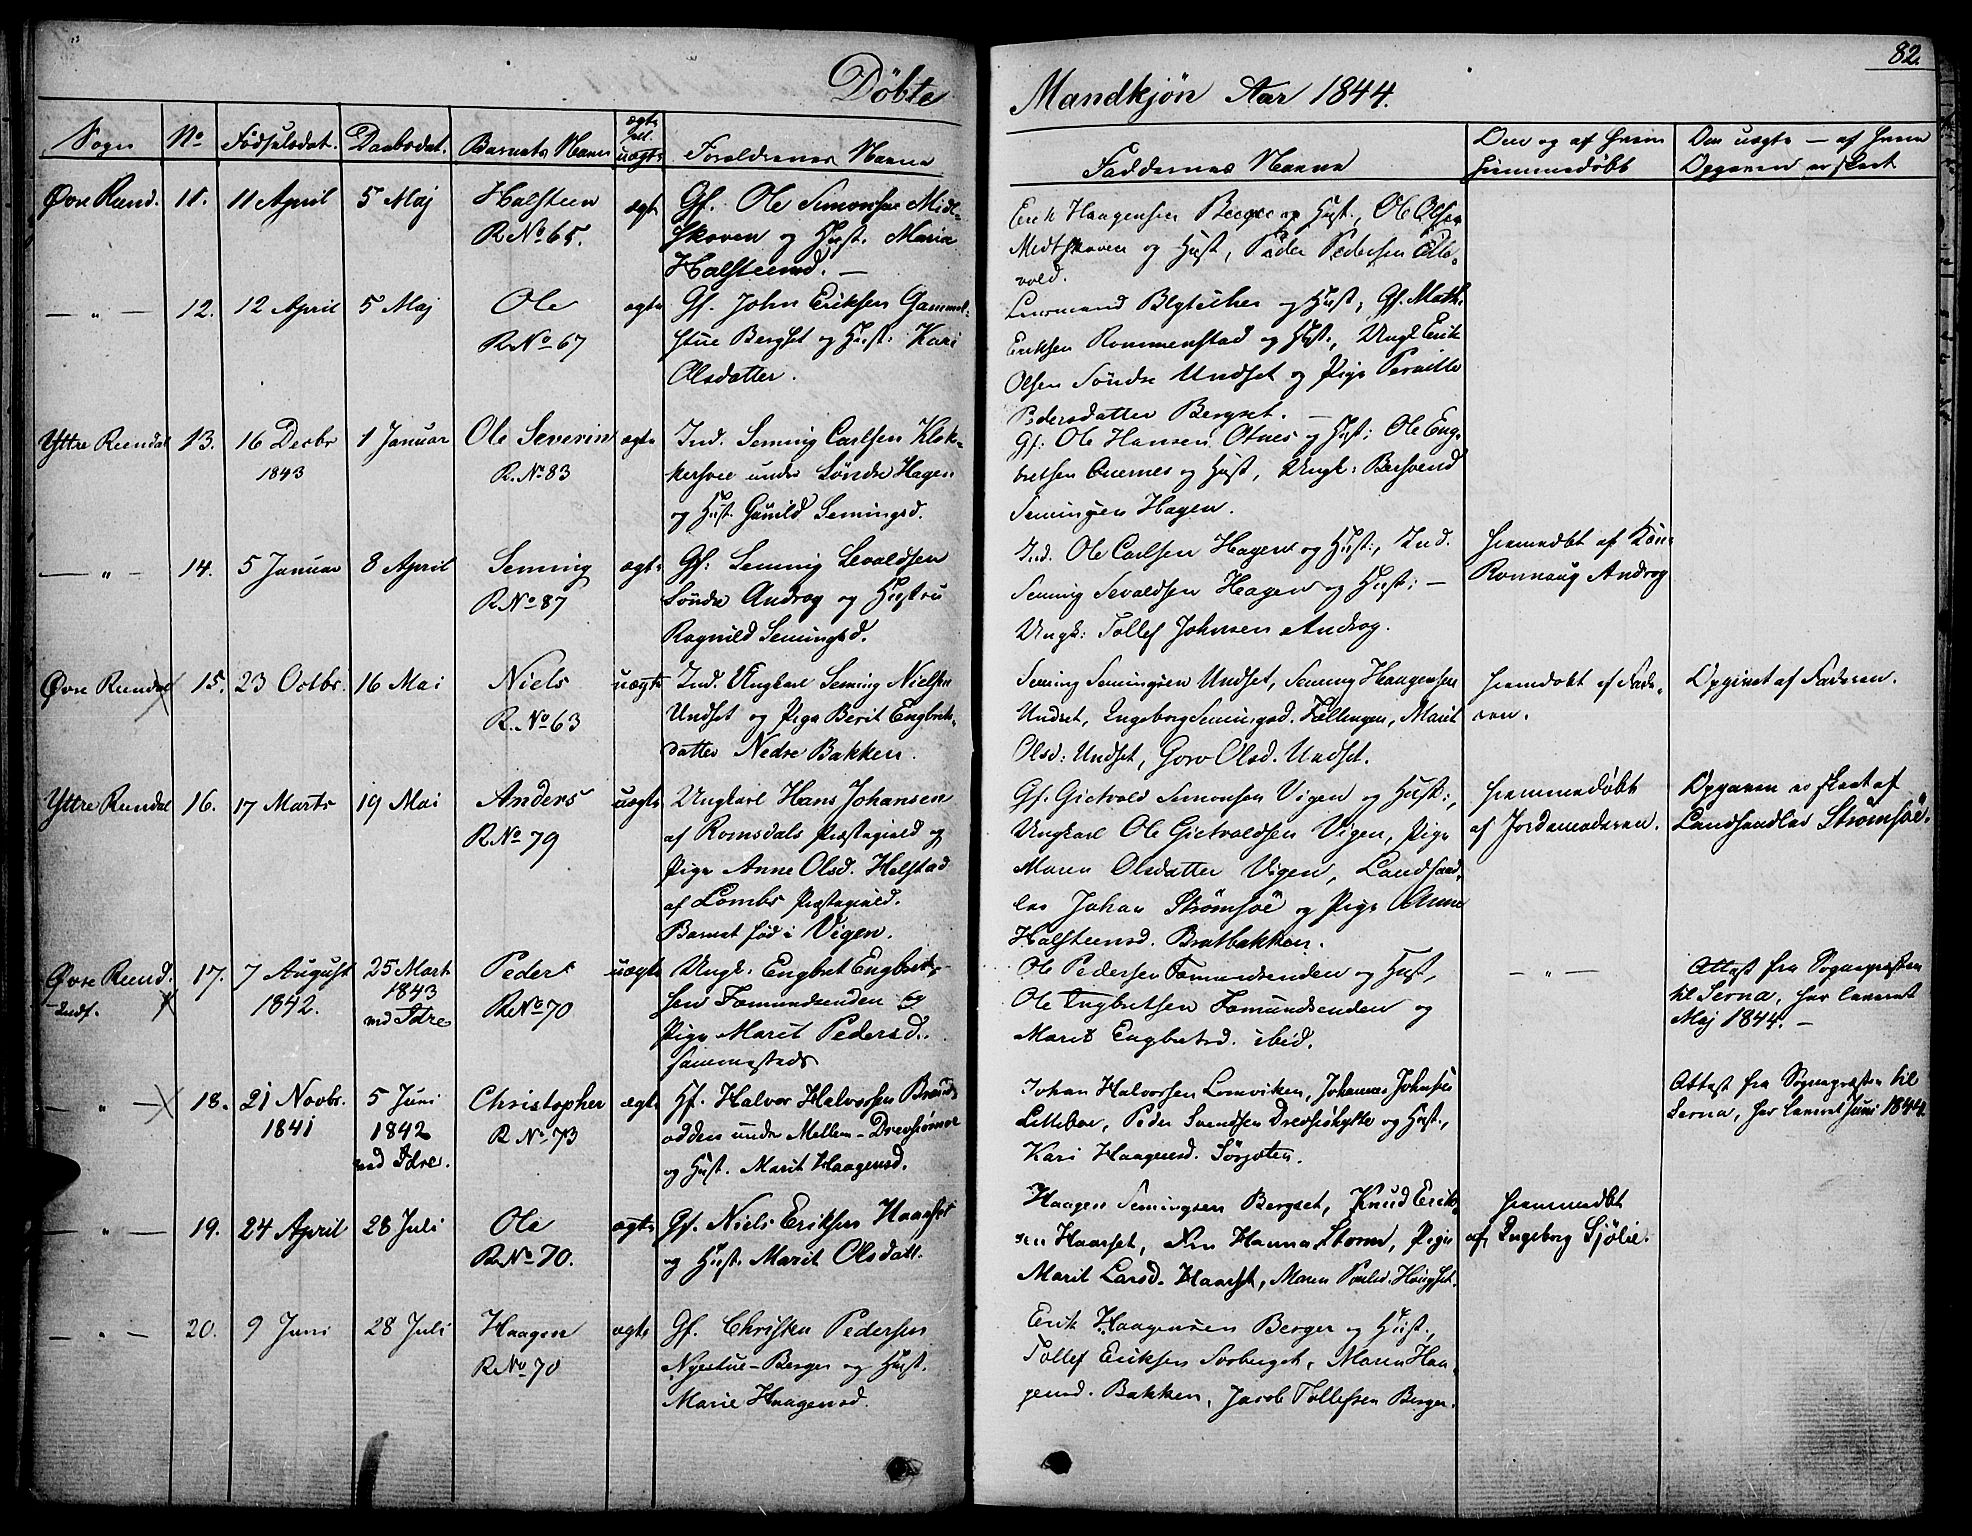 82.
Döbte Mandkjøn Aar 1844.
Sogn No Fødselsdat. Daabsdat. Barnets Navn ægte ell. uægte Forældrenes Navne Faddernes Navne Om og af hvem hjemmedøbt Om uægte — af hvem Opgaven er skeet
Øvre Rend. 11. 11 April 5 Maj Halsteen ægte Gf. Ole Simonsen Midt-
R No 65. skoven og Hust. Maria
Halsteensd. —
Erik Haagensen Berger og Hust., Ole Olsen
Midtskoven og Hust, Peder Pedersen
vold.
— " — 12. 12 April 5 Maj Ole ægte Gf. John Eriksen Gammel-
R No 67 stue Bergset og Hust: Kari
Olsdatter.
og Hust, Gf. Math.
Eriksen Rommenstad og Hust., Ungk Erik
Olsen Söndre Undset og Pige Pernille
Pedersdatter Bergset. —
Yttre Rendal 13. 16 Decbr 1 Januar Ole Severin ægte Ind. Seming Carlsen Klok-
1843 R. No 83 under Søndre Hagen
og Hust. Gunild Semingsd.
Gf: Ole Hansen Otnes og Hust: Ole Eng-
bretsen og Hust, Ungk: Bersvend
Semingsen Hagen.
— " — 14. 5 Januar 8 April Seming ægte Gf: Seming Sevaldsen
R No 87 Söndre Androg og Hustru
Ragnild Semingsd.
Ind. Ole Carlsen Hagen og Hust:, Ind.
Seming Sevaldsen Hagen og Hust: —
Ungk: Tollef Johnsen Androg.
hjemmedøbt af Kon-
Ronnaug Androg
Øvre Rendal 15. 23 Octbr. 16 Mai Niels uægte Ind. Ungkarl Seming Nielsen
R. No 63 Undset og Pige Berit Engbrets-
datter Nedre Bakken.
Seming Semingsen Undset, Seming Haagensen
Undset, Ingeborg Semingsd. Fællingen, Marit
Olsd: Undset, Goro Olsd. Undset.
hjemdøbt af Fade-
ren.
Opgivet af Faderen.
Yttre Rendal 16. 17 Marts 19 Mai Anders uægte Ungkarl Hans Johansen
R No 79 af Romsdals Præstegjeld og
Pige Anne Olsd. Helstad
af Lombs Præstegjeld.
Barnet fød i Vigen.
Gf. Gietvold Simonsen Vigen og Hust:,
Ungkarl Ole Gietvoldsen Vigen, Pige
Maren Olsdatter Vigen, Landhand-
ler Johan Strömsöe og Pige
Halsteensd. Bratbakken.
hjemmedøbt
af Jordemoderen.
Opgaven er skeet af
Landhandler Strømsöe.
Øvre Rend. 17. 7 August 25 Mart. Peder uægte Ungk: Engbret Engbret-
Inds. 1842. 1843 R No 70 sen Fæmundsenden og
ved Idre Pige Marit Pedersd.
sammesteds
Ole Pedersen Fæmundsenden og Hust,
Ole Engbretsen Fæmundsenden og
Marit Engbretsd. ibid.
— " —
Attest fra Sognepræsten
til Serna, her leveret
Maj 1844. —
— " — 18. 21 Novbr. 5 Juni Christopher ægte Hf. Halvor Halvorsen Brænd-
1841 1842 R. No 73 odden under Mellem-Drevsiömoe
ved Idre. og Hust. Marit Haagensd.
Johan Halvorsen Lomviken, Johannes Johnsen
Litteboe, Peder Svendsen og Hust.,
Kari Haagensd. Sörjoten.
Attest fra Sognepræsten til
Serna, her leveret Juni 1844.
— " — 19. 24 April 28 Juli Ole ægte Gf. Niels Eriksen Haarset
R No 70. og Hust. Marit Olsdatt.
Haagen Semingsen Bergset, Knud Erik-
sen Haarset, Hanna Storm, Pige
Marit Larsd. Haarset, Maren Haugset.
hjemmedøbt
af Ingeborg Sjölie.
— " — 20. 9 Juni 28 Juli Haagen ægte Gf. Christen Pedersen
R No 70 Nyestue-Berger og Hust.
Marie Haagensd.
Erik Haagensen Berger og Hust,
Tollef Eriksen Sorberget, Maren Haa-
gensd. Bakken, Jacob Tollefsen Berger.